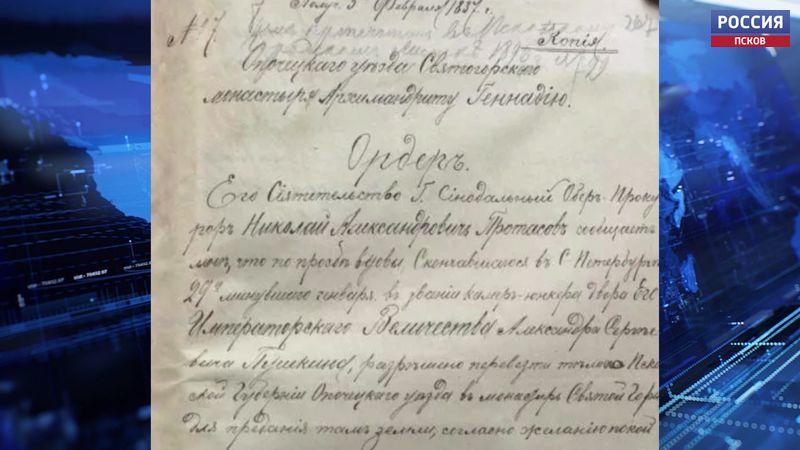 Получ. 5 Февраля 1837 г.
№ 7
Копія.
Опочецкаго уѣзда Святогорскаго
монастыря Архимандриту Геннадію.
Ордеръ.
Его Сіятельство Г. Сінодальный Оберъ-Проку
роръ Николай Александровичь Протасовъ сообщаетъ
мнѣ, что по прозьбѣ вдовы Скончавшагося въ С-Петербургѣ
29го минувшаго генваря въ званіи камеръ-юнкера двора Его
Императорскаго Величества Александра Сергѣ
евича Пушкина, разрѣшено перевезти тѣло Псков
ской Губерніи Опочецкаго уѣзда въ монастырь Святой Горы
для преданія тамъ земли, согласно желанію покой
РОССИЯ
ПСКОВ